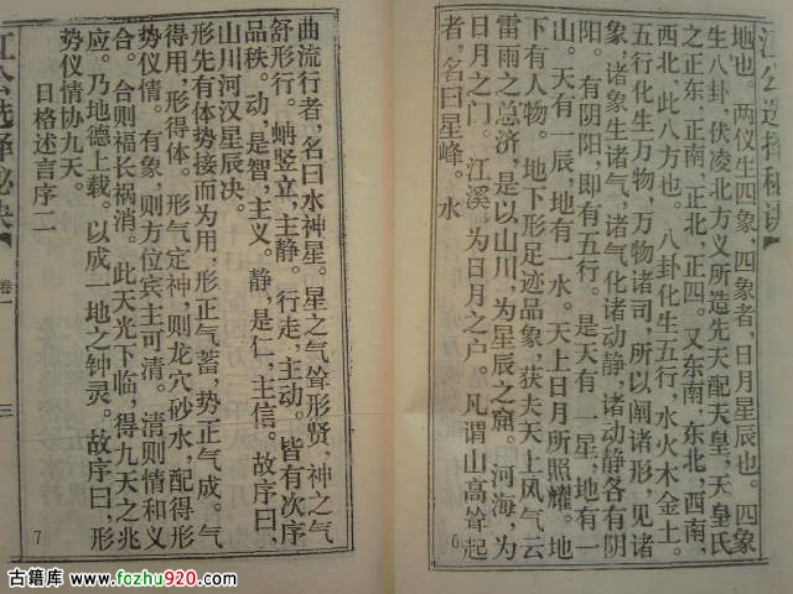 江公选择秘诀
地也。两仪生四象，四象者，日月星辰也。四象
生八卦，伏凌北方义所造先天配天皇，天皇氏
之正东，正南，正北，正四。又东南，东北，西南，
西北，此八方也。八卦化生五行，水火木金土。
五行化生万物，万物诸司，所以阐诸形，见诸
象，诸象生诸气，诸气化诸动静，诸动静各有阴
阳。有阴阳，即有五行。是天有一星，地有一
山。天有一辰，地有一水。天上日月所照耀。地
下有人物。地下形足迹品象，获夫天上风气云
雷雨之总济，是以山川，为星辰之窟。河海，为
日月之门。江溪，为日月之户。凡谓山高耸起
者，名曰星峰。水
6
曲流行者，名曰水神星。星之气耸形贤，神之气
舒形行。蚺竖立，主静。行走，主动。皆有次序
品秩。动，是智，主义。静，是仁，主信。故序曰，
山川河汉星辰决。
形先有体势接而为用，形正气蓄，势正气成。气
得用，形得体。形气定神，则龙穴砂水，配得形
势仪情。有象，则方位宾主可清。清则情和义
合。合则福长祸消。此天光下临，得九天之兆
应。乃地德上载。以成一地之钟灵。故序曰，形
势仪情协九天。
日格述言序二
江公选择秘诀
卷一
三
7
古籍库 www.fozhu920.com